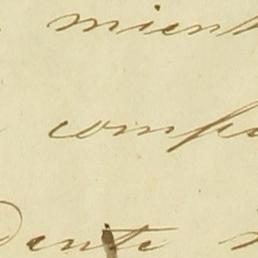 mient
comp
Dente